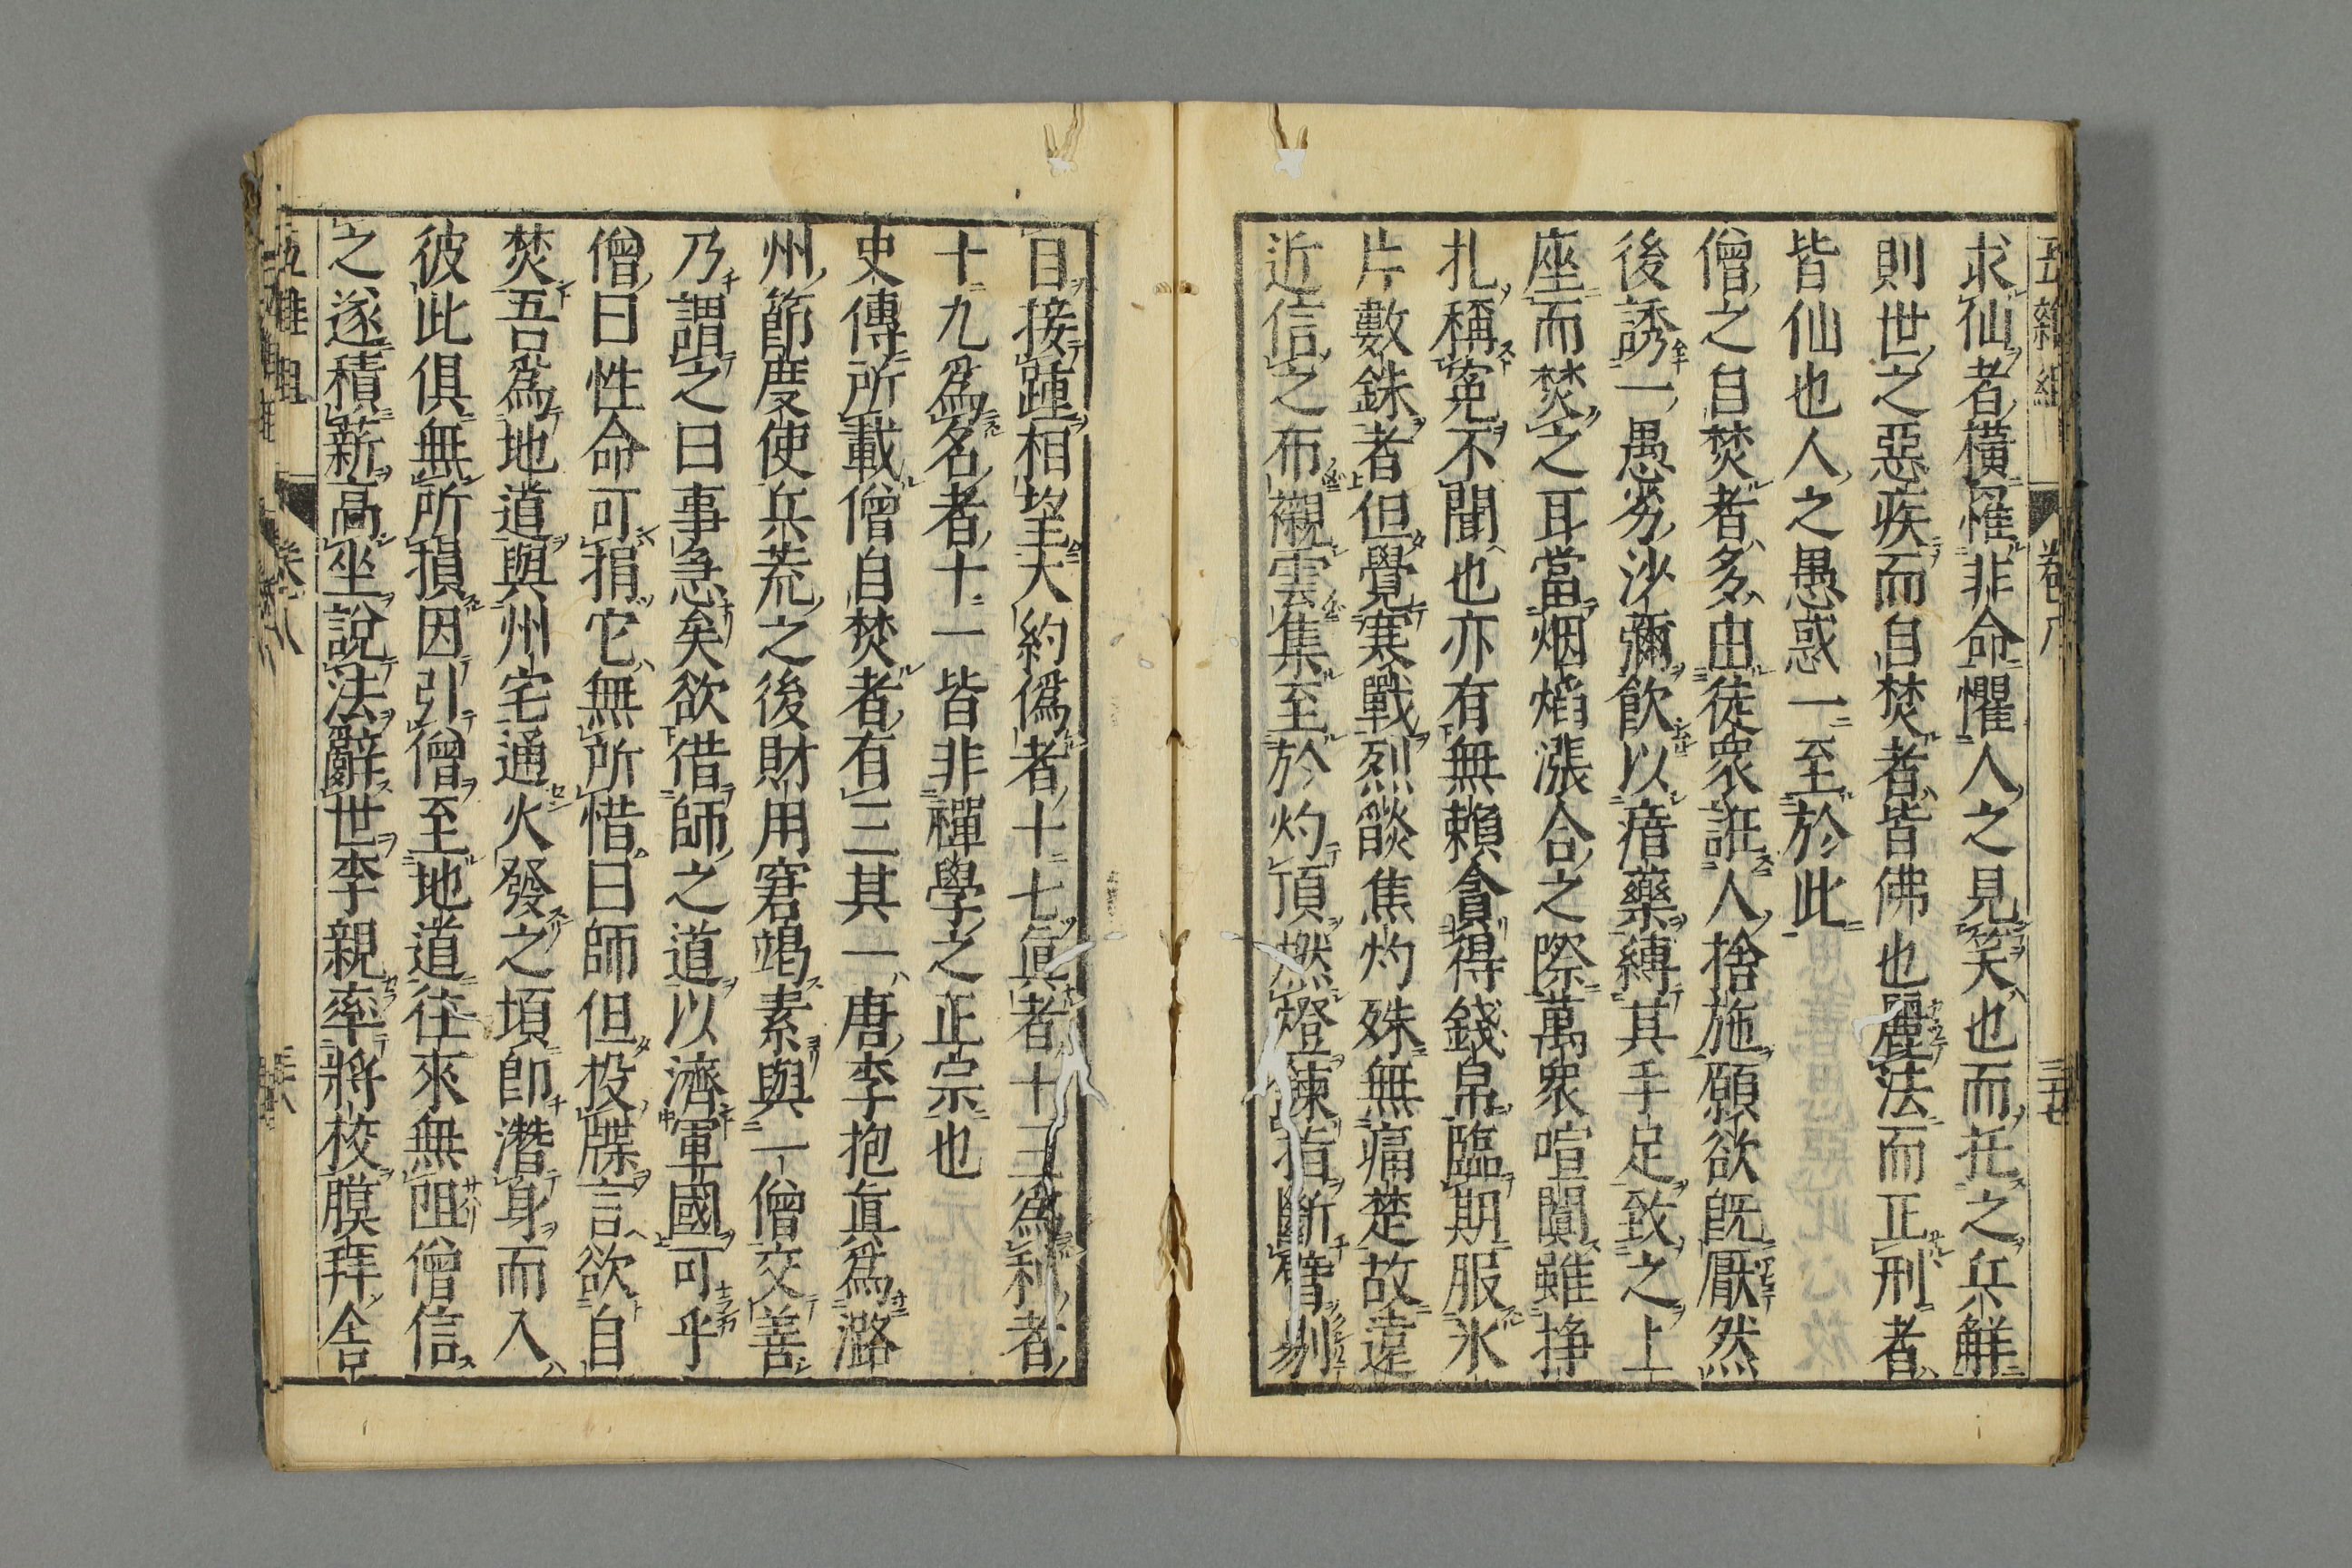 五雜組 卷八 三十七
求仙者橫罹非命懼人之見笑也而託之兵解
則世之惡疾而自焚者皆佛也麗法而正刑者
皆仙也人之愚惑一至於此
僧之自焚者多由徒衆誑人捨施願欲既厭然
後誘一愚劣沙彌飲以瘖藥縛其手足致之上
座而焚之耳當烟焰漲合之際萬衆喧闐雖掙
扎稱冤不聞也亦有無賴貪得錢帛臨期服氷
片數銖者但覺寒戰烈燄焦灼殊無痛楚故遠
近信之布襯雲集至於灼頂燃燈煉指斷臂剔
目接踵相望大約僞者十七眞者十三爲利者
十九爲名者十一皆非禪學之正宗也
史傳所載僧自焚者有三其一唐李抱眞爲潞
州節度使兵荒之後財用窘竭素與一僧交善
乃謂之曰事急矣欲借師之道以濟軍國可乎
僧曰性命可捐它無所惜曰師但投牒言欲自
焚吾爲地道與州宅通火發之頃卽潛身而入
彼此俱無所損因引僧至地道往來無阻僧信
之遂積薪高坐說法辭世李親率將校膜拜舍
五雜組 卷八 三十八